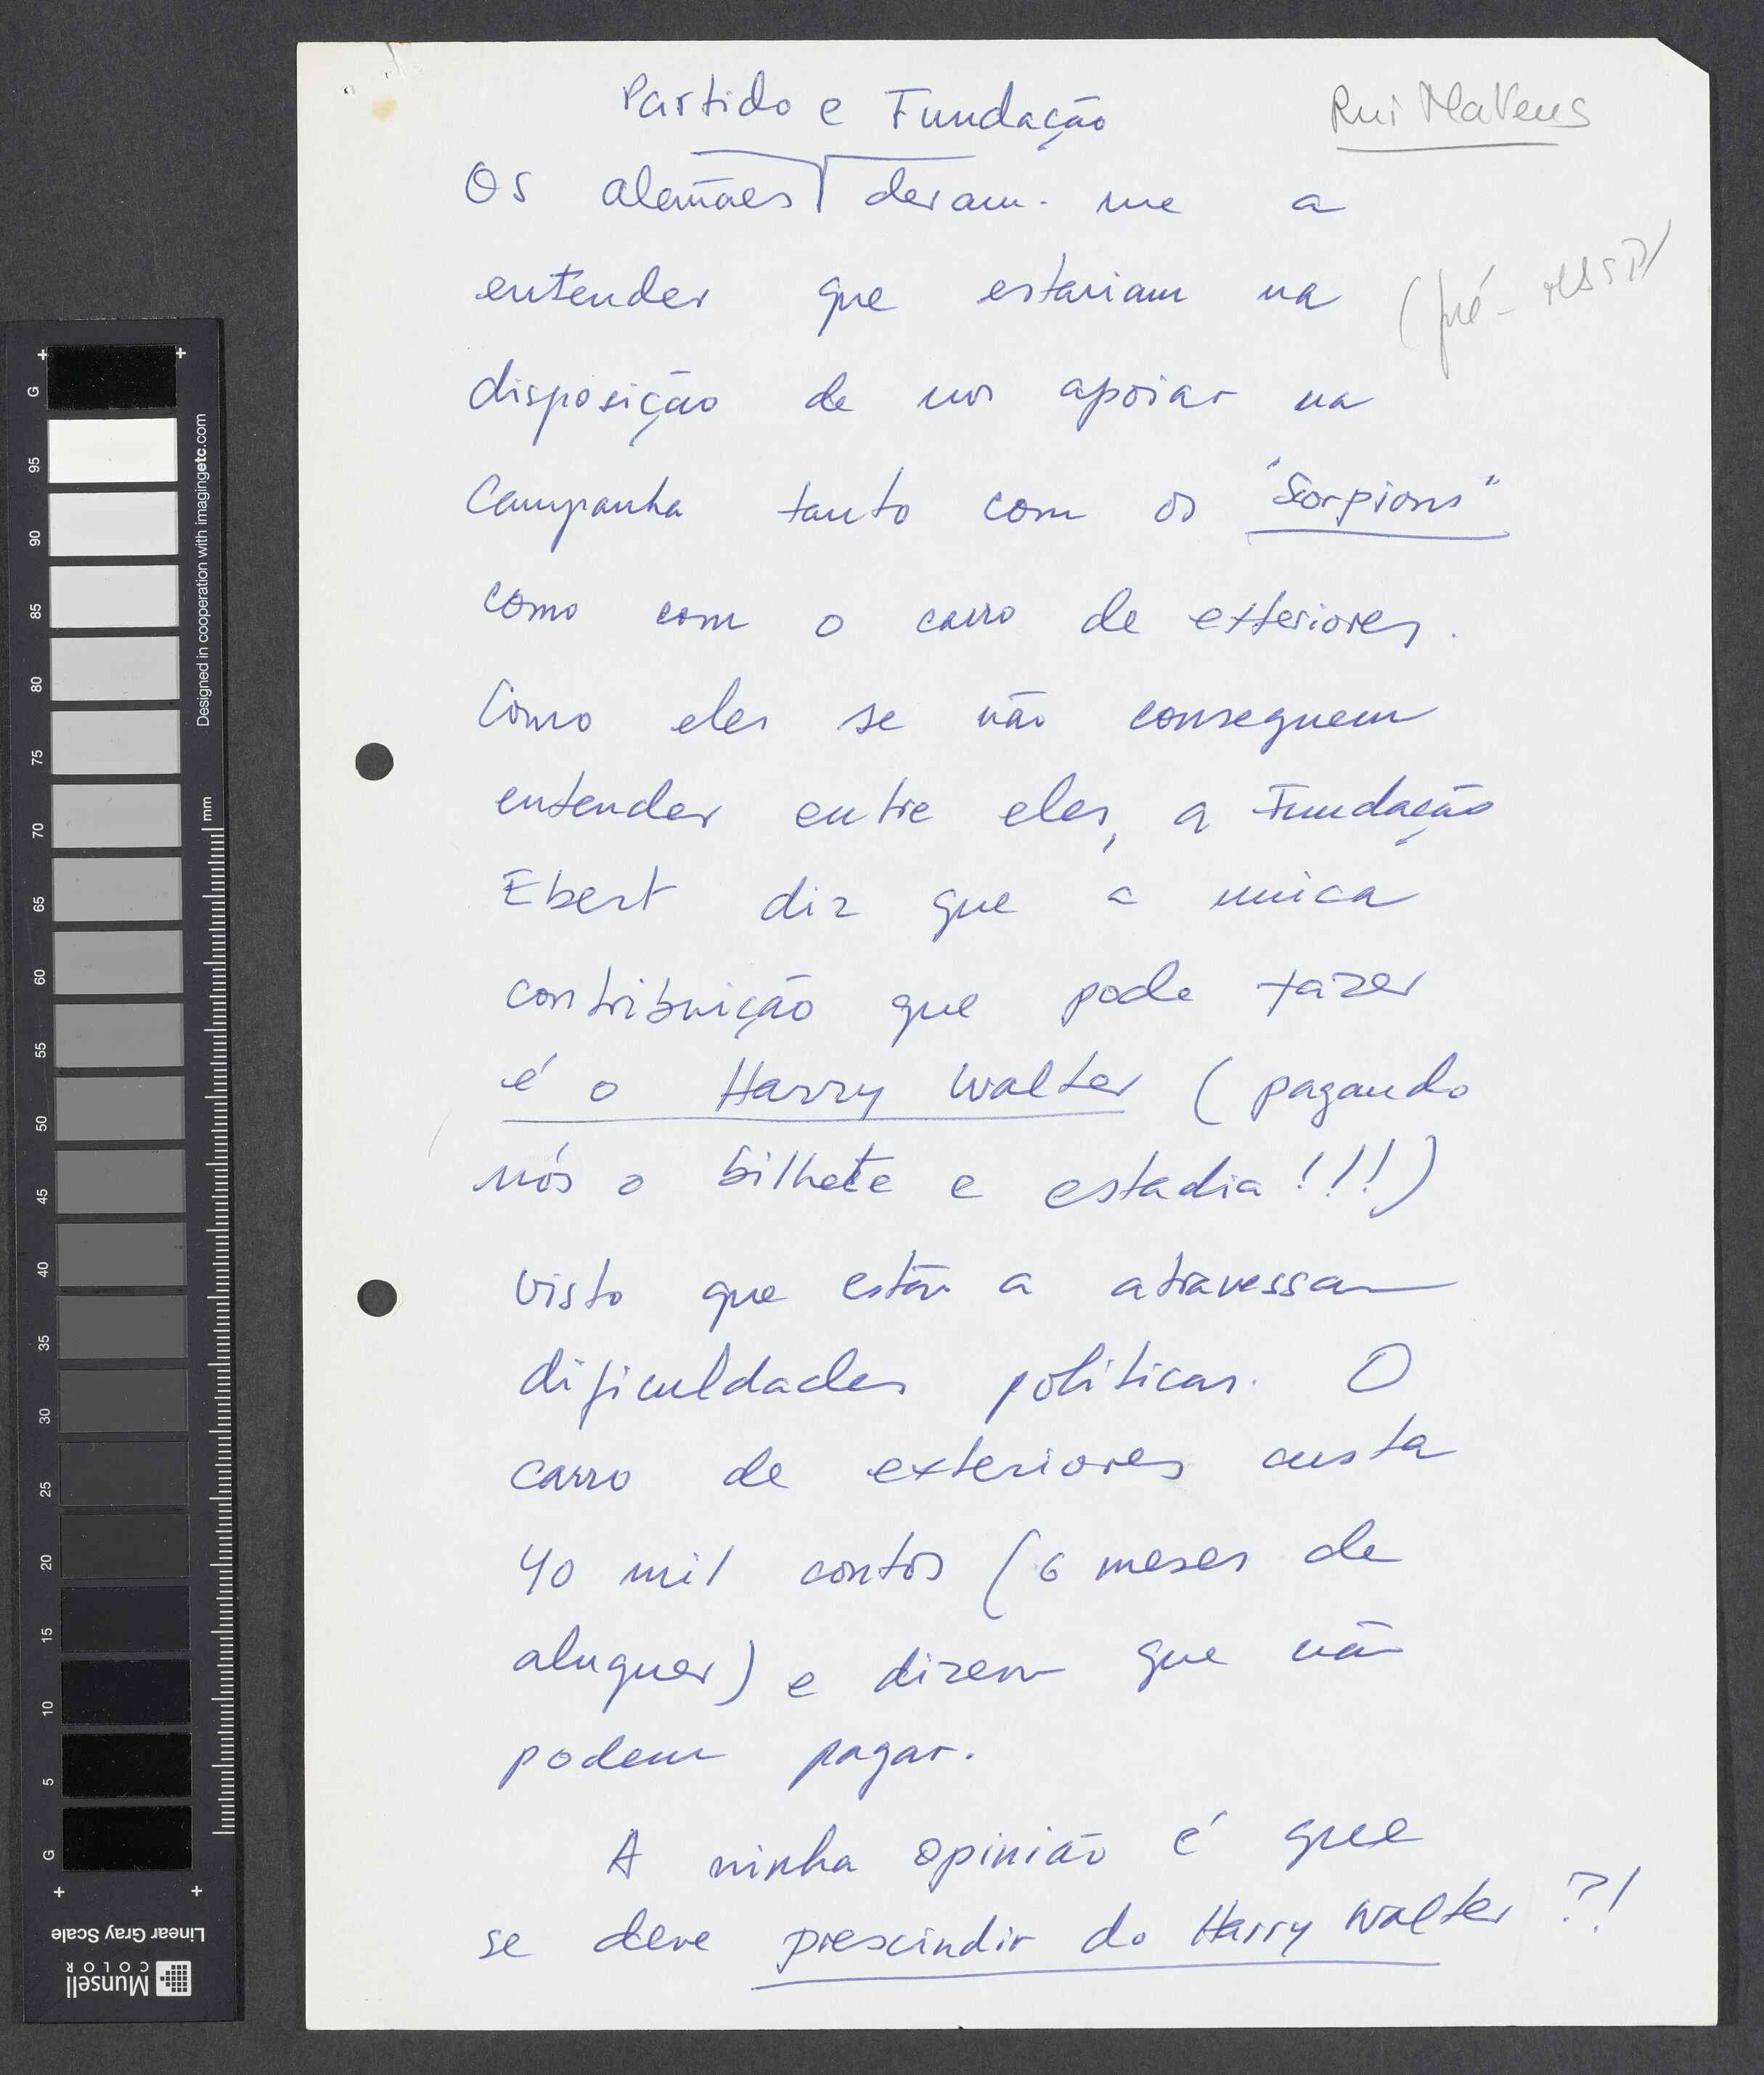 Partido e Fundação
Rui Mateus
Os alemães deram-me a
entender que estariam na
(pré-MASP)
disposição de nos apoiar na
Campanha tanto com os "Scorpions"
como com o carro de exteriores.
Como eles se não conseguem
entender entre eles, a Fundação
Ebert diz que a unica
contribuição que pode fazer
é o Harry Walter (pagando
nós o bilhete e estadia!!!)
visto que estão a atravessar
dificuldades politicas. O
carro de exteriores custa
40 mil contos (6 meses de
aluguer) e dizem que não
podem pagar.
A minha opinião é que
se deve prescindir do Harry Walter?!
G
95
90
85
80
75
70
65
60
55
50
45
40
35
30
25
20
15
10
5
G
Designed in cooperation with imagingetc.com
mm
Linear Gray Scale
Munsell
COLOR